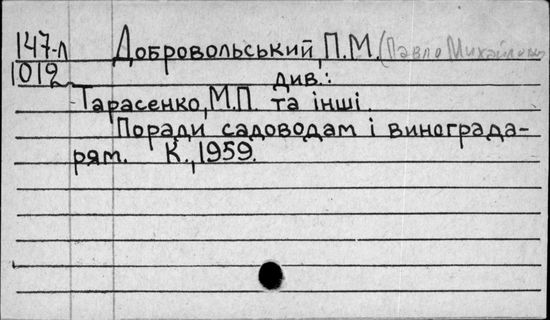 147-л Добровольський, П.М. (Павло Михайлович
1012
див.:
Тарасенко, М.П. та інші.
Поради садоводам і винограда-
рям. К., 1959.